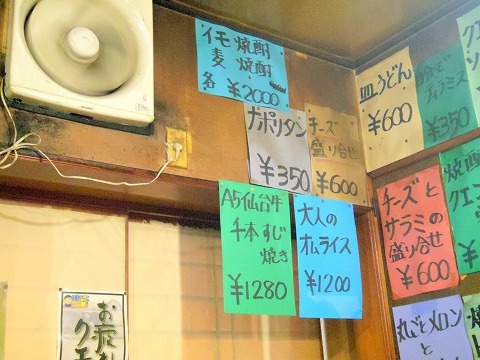 イモ焼酎
麦焼酎
各 ¥2000
ナポリタン
¥350
チーズ
盛り合せ
¥600
皿うどん
¥600
¥350
A5仙台牛
千本すじ
焼き
¥1280
大人の
オムライス
¥1200
チーズと
サラミの
盛り合せ
¥600
焼酎
クエン
丸ごとメロン
と
お疲